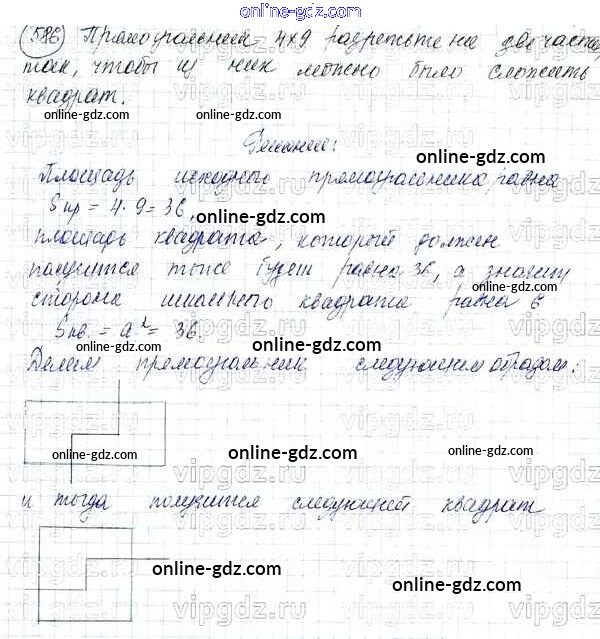 online-gdz.com
586 Прямоугольник 4×9 разрежьте на две части,
так, чтобы из них можно было сложить
квадрат.
online-gdz.com
Решение:
online-gdz.com
Площадь исходного прямоугольника равна
Sпр = 4 · 9 = 36,
online-gdz.com
площадь квадрата, который должен
получится тоже будет равна 36, а значит
сторона искомого квадрата равна 6
Sкв = a² = 36.
online-gdz.com
online-gdz.com
Делим прямоугольник следующим образом:
online-gdz.com
online-gdz.com
online-gdz.com
и тогда получится следующей квадрат
online-gdz.com
online-gdz.com
vipgdz.ru